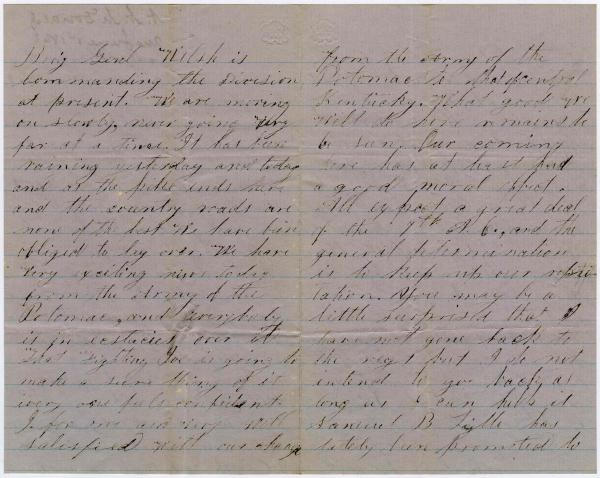 Brig Genl Welsh is
commanding the division
at present. We are moving
on slowly, never going very
far at a time. It has been
raining yesterday and today
and as the pike ends here
and the county roads are
none of the best we have been
obliged to lay over. We have
very exciting news today
from the army of the
Potomac, and everybody
is in ecstacies over it
That Fighting Joe is going to
make a sure thing of it
every one feels confident.
I for one am very well
satisfied with our change
from the Army of the
Potomac to
Kentucky. What good we
will do here remains to
be seen. Our coming
here has at least had
a good moral effect.
All expect a great deal
of the 9th A. C., and the
general determination
is to keep up our repu-
tation. You may be a
little surprised that I
have not gone back to
the regt but I do not
intend to go back as
long as I can help it
Samuel B. has
lately been promoted to